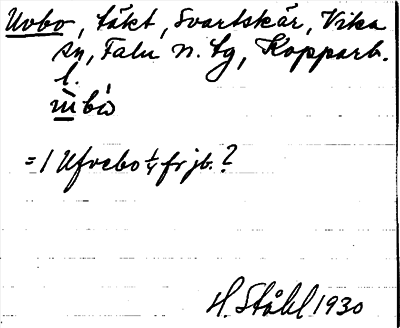 Uvbo, täkt, Svartskär, Vika
sn, Falu n. tg, Kopparb.
l.
ùbò
= 1 Ufvebo 1/4 fr jb.?
H. Ståhl 1930